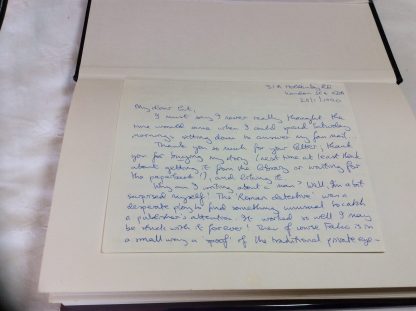 31A
London
20/1/1990
My dear
I must say I never really thought the
time would come when I could spend Saturday
mornings sitting down to answer my fan mail.
Thank you so much for your letter, thank
you for buying my story (next time at least think
about getting it from the Library or waiting for
the paperback!), and liking it.
Why am I writing about a man? Well, I'm a bit
surprised myself! The Roman detective was a
desperate ploy to find something unusual to catch
a publisher's attention. It worked so well I may
be stuck with it forever! Then of course Falco is in
a small way a spoof of the traditional private eye -